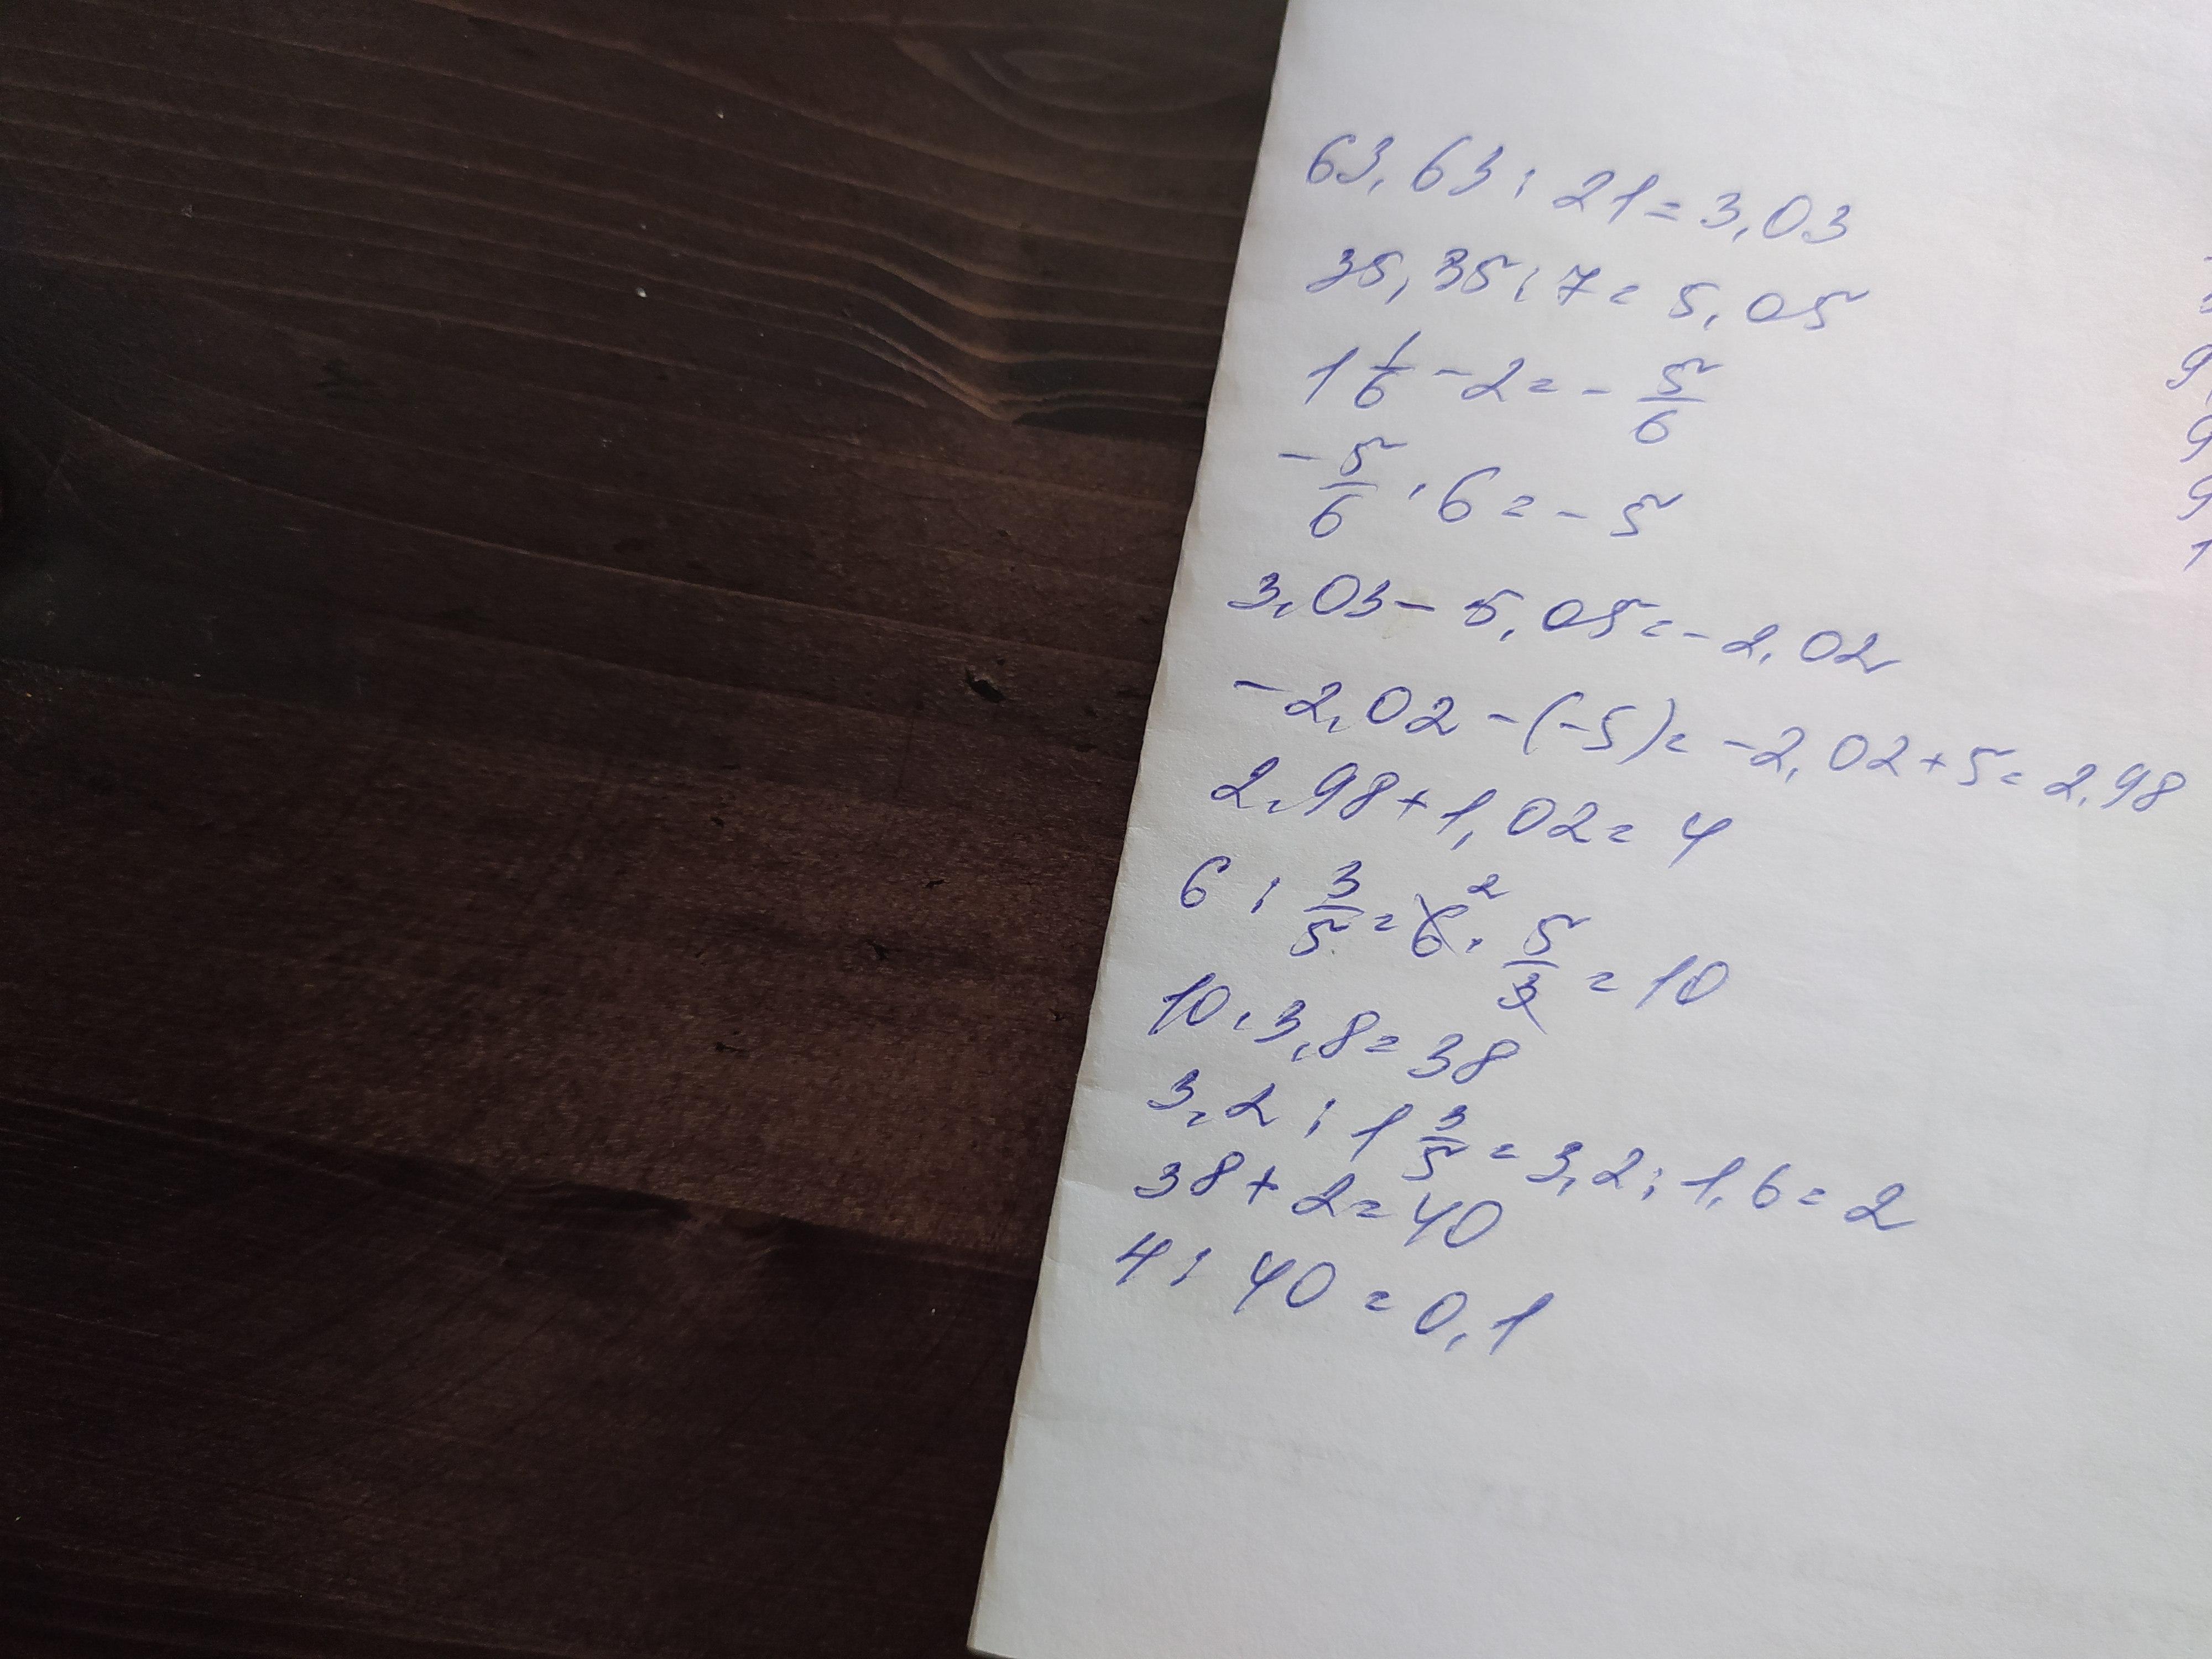 63,63 : 21 = 3,03
35,35 : 7 = 5,05
1 1/6 - 2 = - 5/6
- 5/6 · 6 = - 5
3,03 - 5,05 = - 2,02
- 2,02 - (-5) = - 2,02 + 5 = 2,98
2,98 + 1,02 = 4
6 : 3/5 = 6² · 5/3 = 10
10 · 3,8 = 38
3,2 : 1 3/5 = 3,2 : 1,6 = 2
38 + 2 = 40
4 : 40 = 0,1